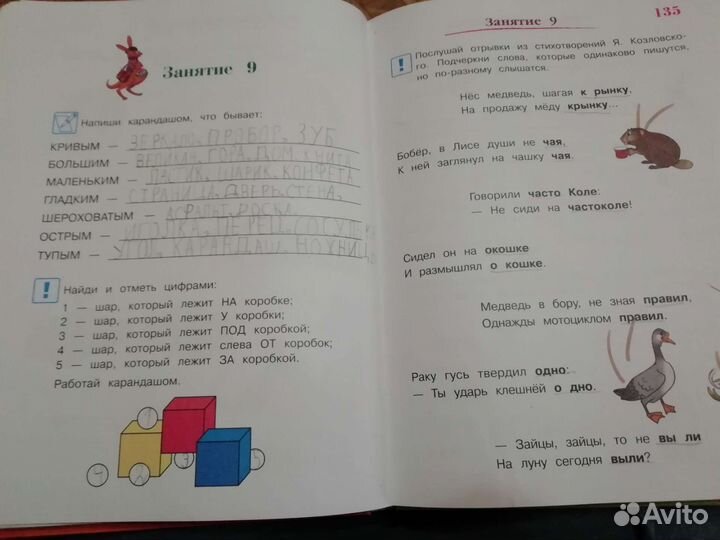 Занятие 9
Напиши карандашом, что бывает:
КРИВЫМ — ЗЕРКАЛО, ПРОБОР, ЗУБ
БОЛЬШИМ — ВЕЛИКАН, ГОРА, ДОМ, КНИГА
МАЛЕНЬКИМ — ЛАСТИК, ШАРИК, КОНФЕТА
ГЛАДКИМ — СТРАНИЦА, ДВЕРЬ, СТЕНА,
ШЕРОХОВАТЫМ — АСФАЛЬТ, ДОСКА.
ОСТРЫМ — ИГОЛКА, ПЕРЕЦ, СОСУЛЬКА
ТУПЫМ — УГОЛ, КАРАНДАШ, НОЖНИЦЫ
Найди и отметь цифрами:
1 — шар, который лежит НА коробке;
2 — шар, который лежит У коробки;
3 — шар, который лежит ПОД коробкой;
4 — шар, который лежит слева ОТ коробок;
5 — шар, который лежит ЗА коробкой.
Работай карандашом.
Занятие 9
135
Послушай отрывки из стихотворений Я. Козловско-
го. Подчеркни слова, которые одинаково пишутся,
но по-разному слышатся.
Нёс медведь, шагая к рынку,
На продажу мёду крынку...
Бобёр, в Лисе души не чая,
К ней заглянул на чашку чая.
Говорили часто Коле:
— Не сиди на частоколе!
Сидел он на окошке
И размышлял о кошке.
Медведь в бору, не зная правил,
Однажды мотоциклом правил.
Раку гусь твердил одно:
— Ты ударь клешнёй о дно.
— Зайцы, зайцы, то не вы ли
На луну сегодня выли?
Avito